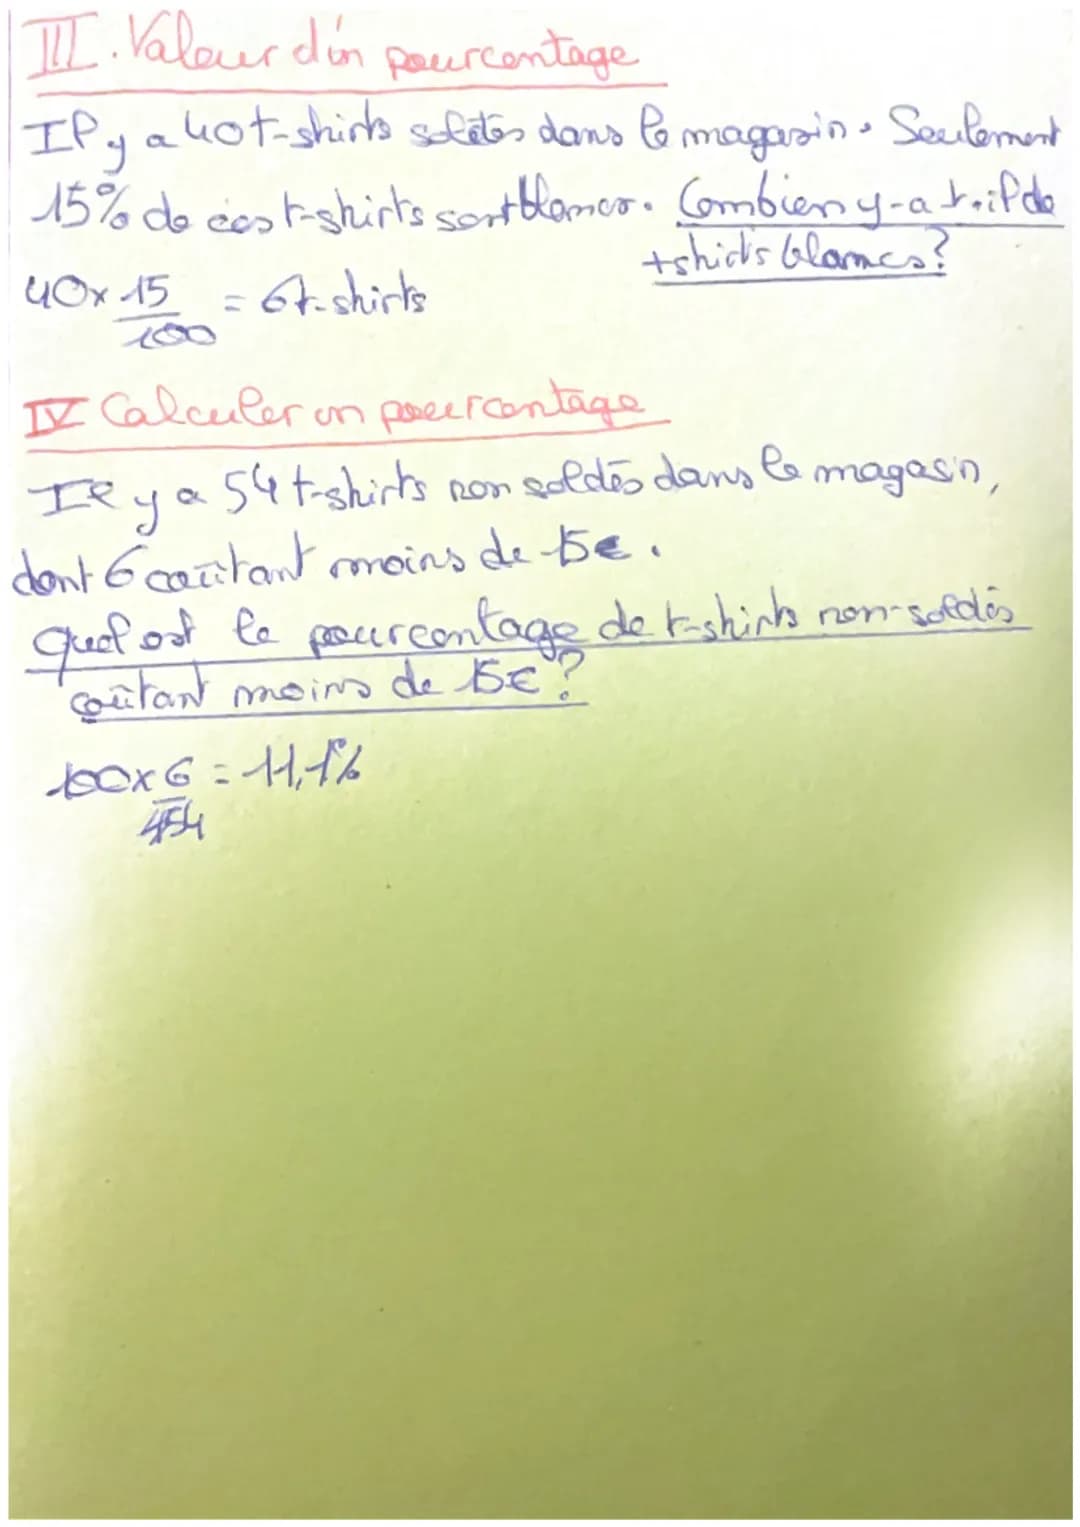 III. Valeur d'un pourcentage
Il y a 40 t-shirts soldés dans le magasin. Seulement
15% de ces t-shirts sont blancs. Combien y-a t-il de
t shirts blancs?
40 x 15/100 = 6 t-shirts
IV Calculer un pourcentage
Il y a 54 t-shirts non soldés dans le magasin,
dont 6 coûtant moins de 15€.
Quel est le pourcentage de t-shirts non-soldés
coûtant moins de 15€?
100 x 6/54 = 11,1%